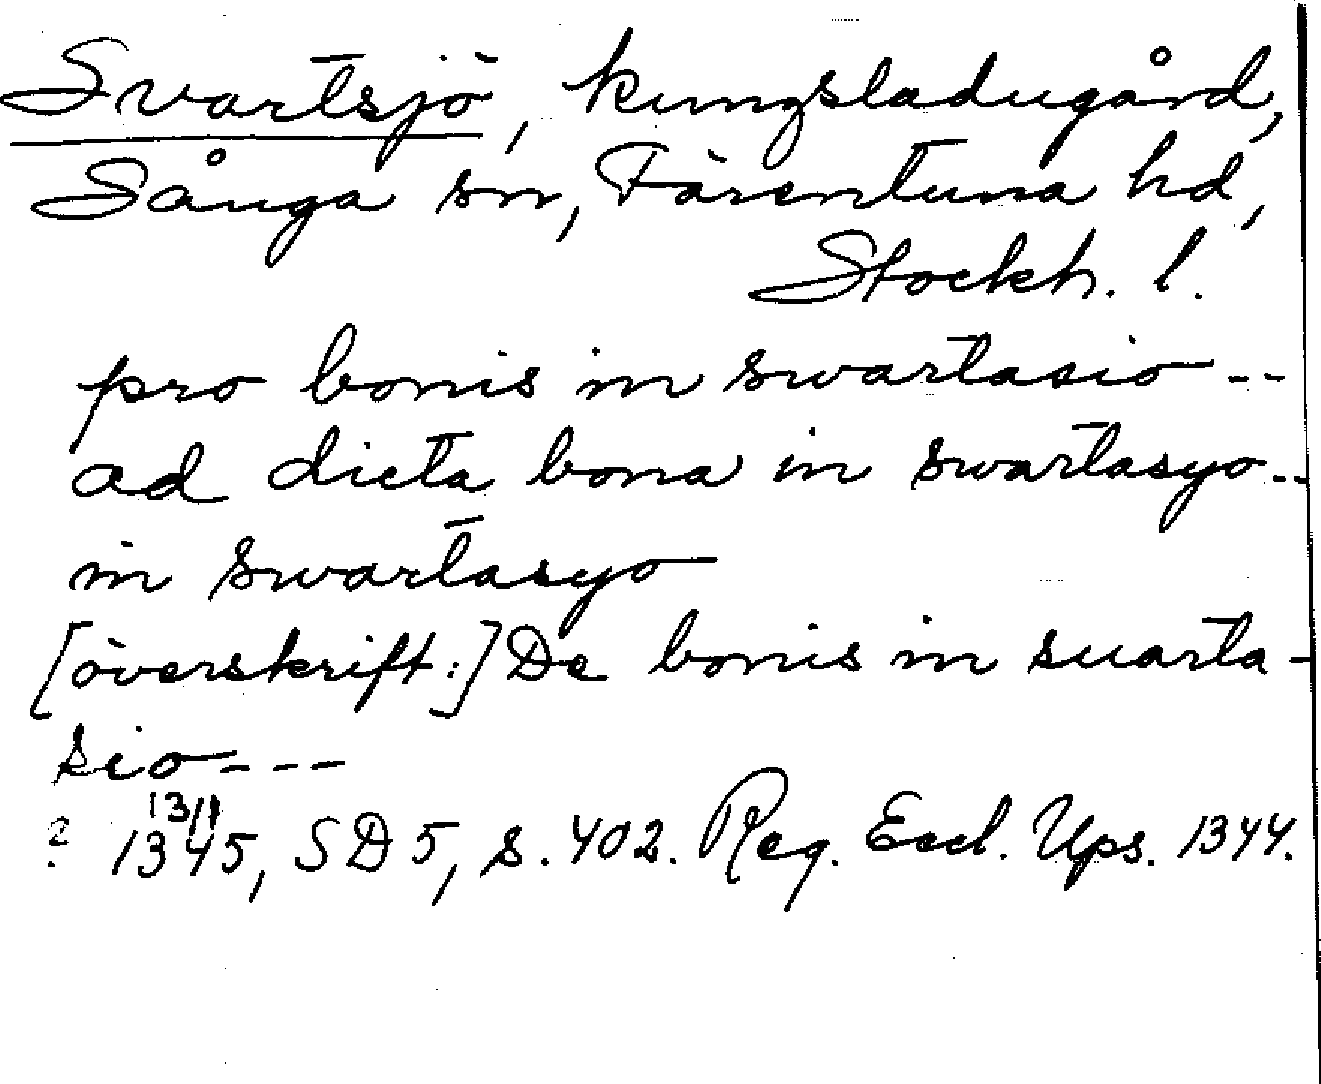 Svartsjö, kungsladugård,
Sånga sn, Färentuna hd,
Stockh. l.
pro bonis in swartasio --
ad dicta bona in swartasyo --
in swartasyo
[överskrift:] De bonis in suarta-
sio ---
13/11
? 1345, SD 5, s. 402. Reg. Eccl. Ups. 1344.